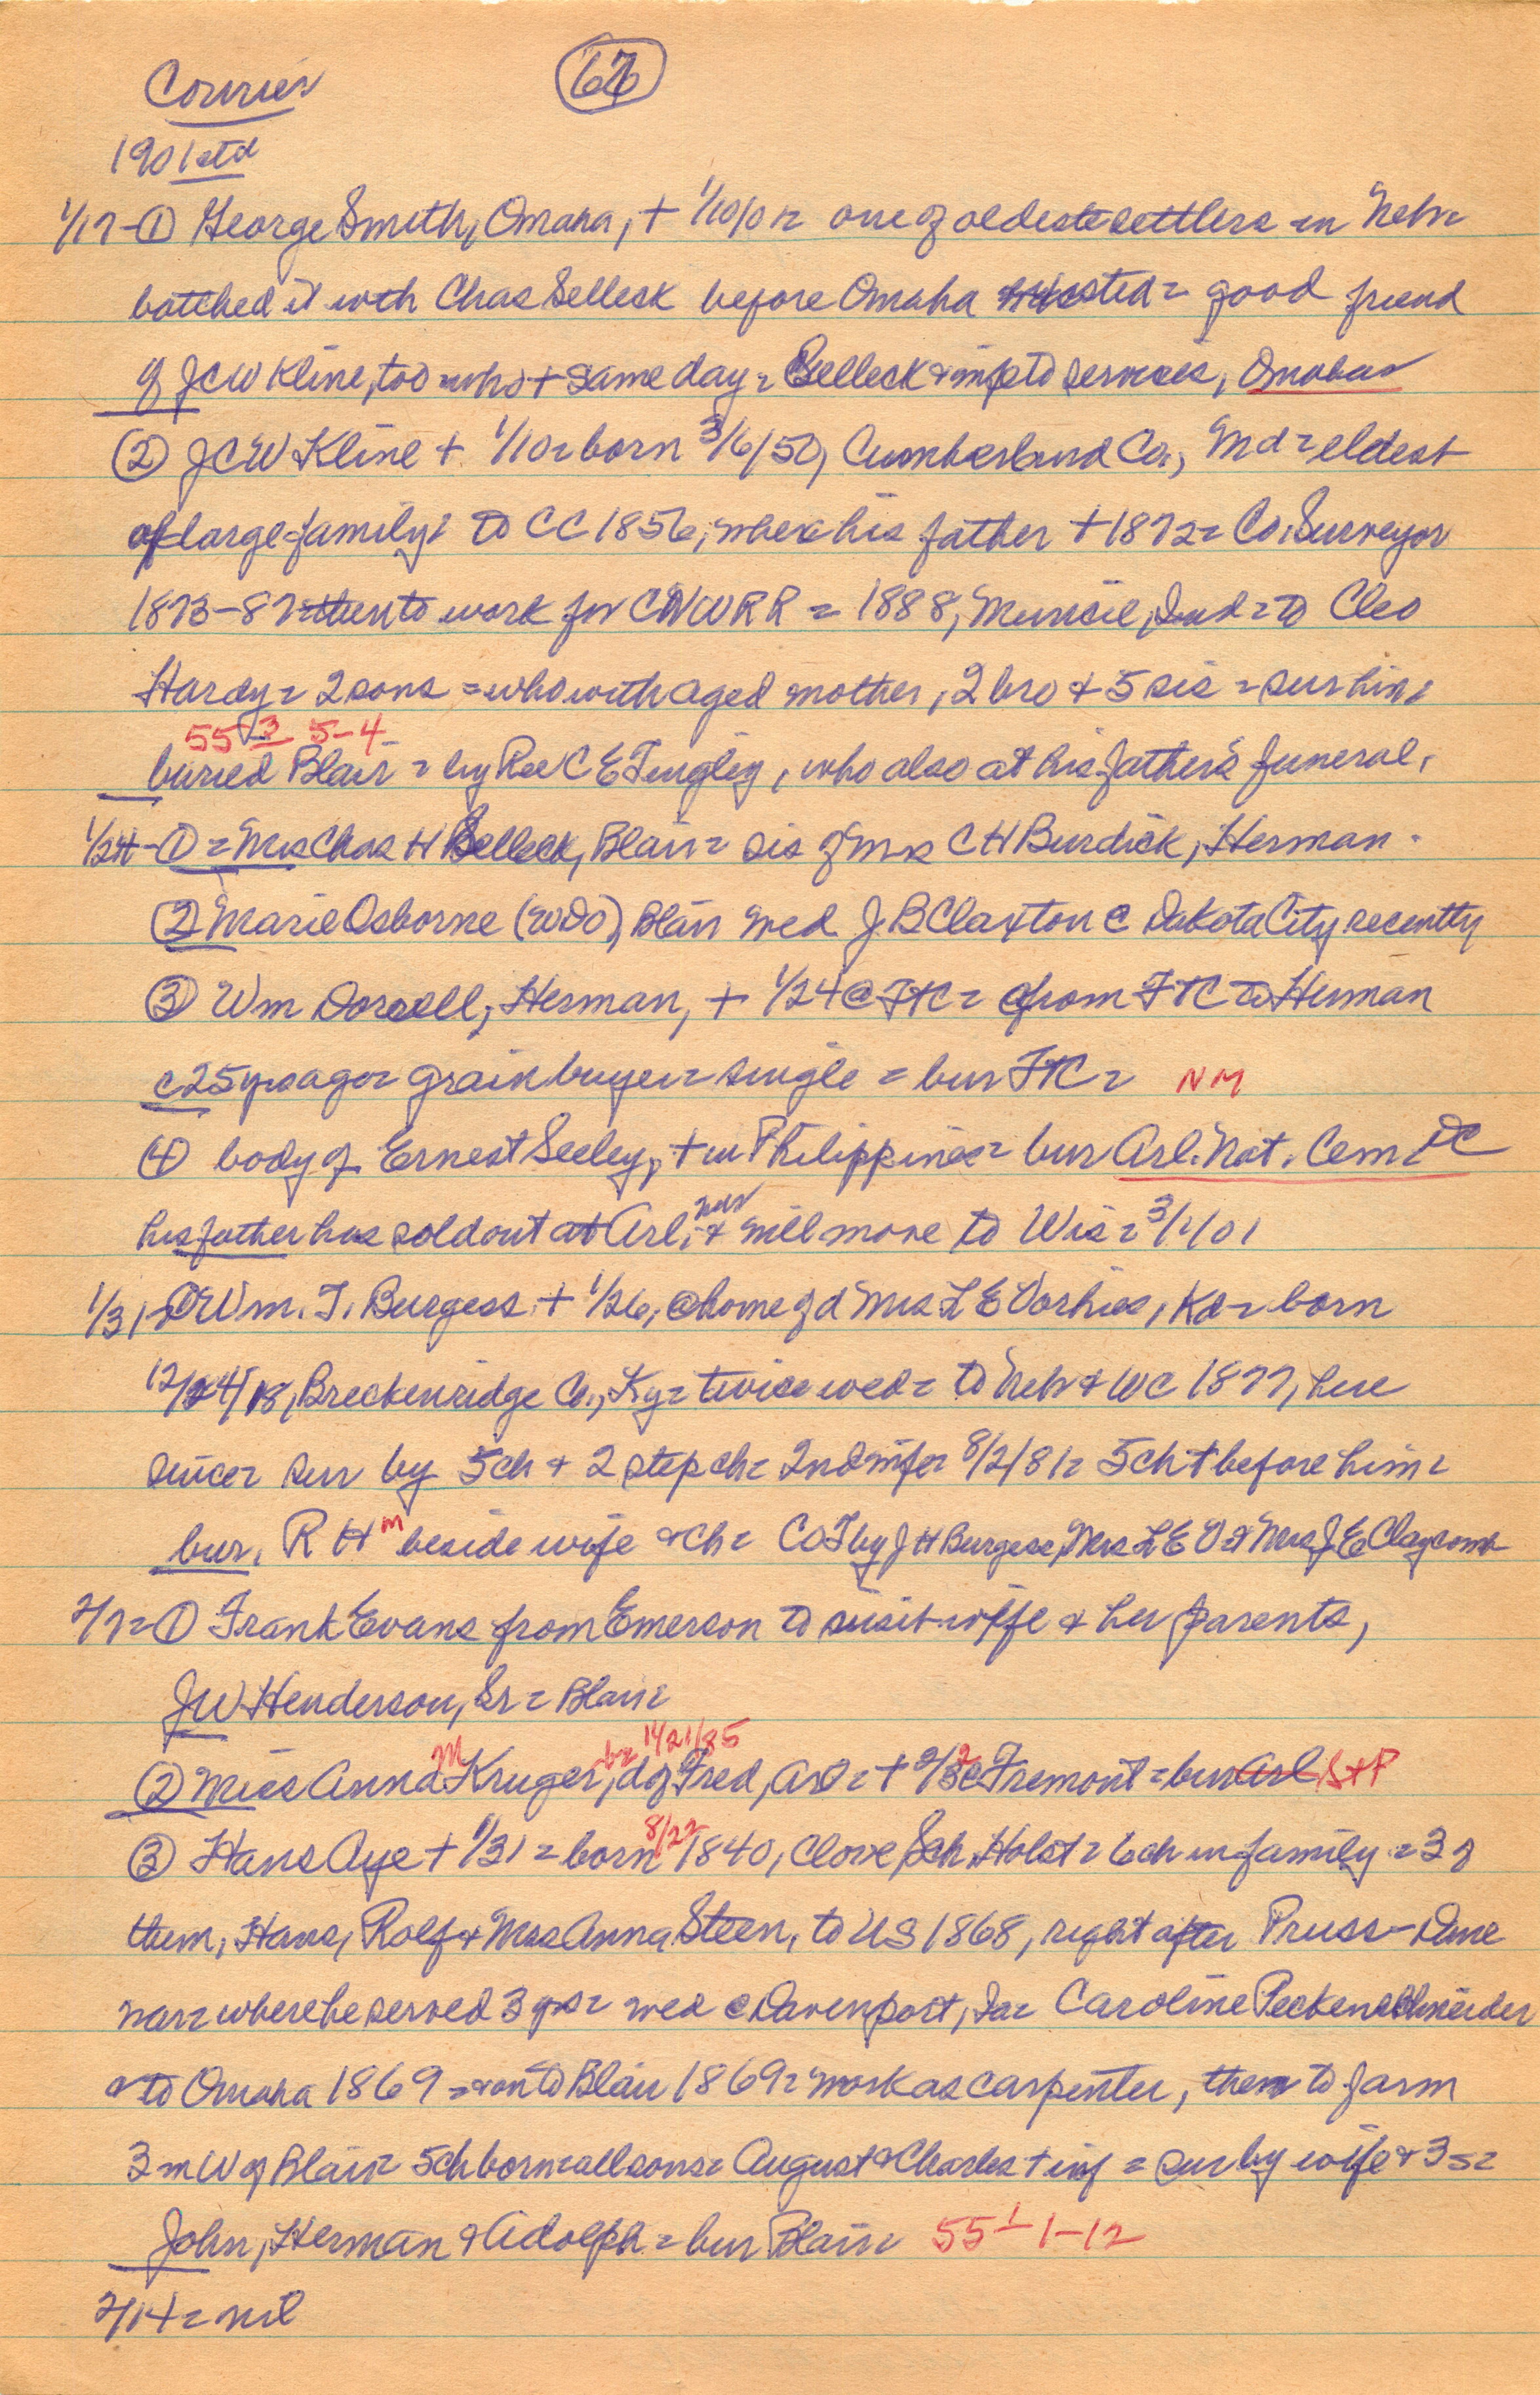 Courier
67
1901ctd
1/17-① George Smith, Omaha, + 1/10/01= one of oldest settlers in Nebr
batched it with Chas Selleck before Omaha = good friend
of JCW Kline, too = who + same day = Selleck & mf to services, Omaha
② JCW Kline + 1/10= born 3/6/50, Cumberland Co, Md = eldest
of large family= to CC 1856, where his father + 1872= Co. Surveyor
1873-87= then to work for CNWRR = 1888, Muncie, Ind = to Cleo
Hardy = 2 sons = who with aged mother, 2 bro & 5 sis = sur him=
55 3 5-4
buried Blair = by Rev C E Tingley, who also at his father's funeral.
1/24-① = Mrs Chas H Selleck, Blair = sis of Mrs C H Burdick, Herman.
② Marie Osborne (WDO), Blair wed J B Claxton @ Dakota City recently
③ Wm, Herman, + 1/24 @ FtC = from FtC to Herman
c25yrs ago= grain buyer = single = bur FtC = NM
④ body of Ernest Seeley, + in Philippines = bur Arl. Nat. Cem DC
his father has sold out at Arl, & will move to Wis = 3/1/01
1/31= Wm. T. Burgess + 1/26, @ home of d Mrs L E Vorhies, Kd = born
12/24/18, Breckenridge Co., Ky= twice wed = to Nebr & WC 1877, here
since= sur by 5ch & 2 step ch= 2nd 8/2/81= 5ch + before him=
bur. R H m beside wife & ch= COT by J H Burgess, Mrs L E V & Mrs J E Claycomb
2/7=① Frank Evans from Emerson to visit wife & her parents,
J W Henderson, Sr = Blair=
M b= 1/21/85
② Miss Anna Kruger, d of Fred, Arl = + 2/2 @ Fremont = bur Arl St P
8/22
③ Hans Aye + 1/31 = born 1840, Clove, Sch. Holst = 6ch in family = 3 of
them, Hans, Rolf & Mrs Anna Steen, to US 1868, right after Pruss-Dane
war= where he served 3 yrs= wed @ Davenport, Ia= Caroline Peckenschneider
& to Omaha 1869 = & on to Blair 1869= work as carpenter, then to farm
3 m W of Blair= 5ch born= all sons= August & Charles + inf = sur by wife & 3 s=
John, Herman & Adolph = bur Blair= 55 1 1-12
2/14= nil